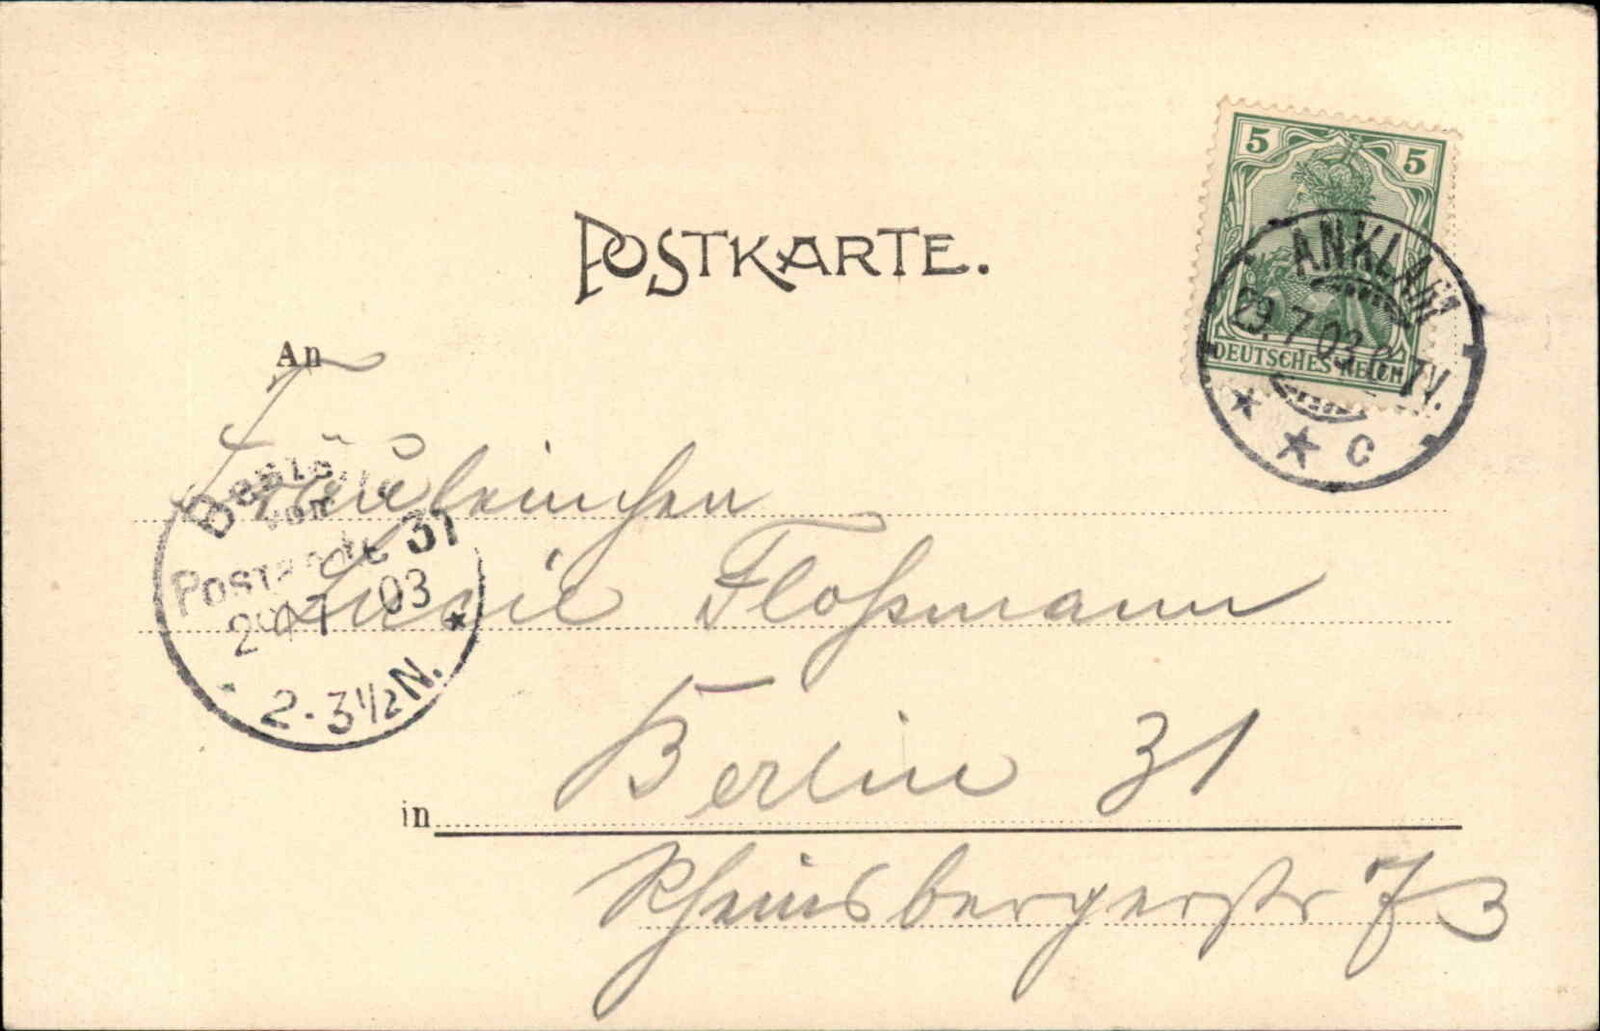 POSTKARTE.
5 5
DEUTSCHES REICH
ANKLAM
29.7.03. 6-7V.
* * C
An
Fräuleinchen
Lucie Floßmann
Bestellt
vom
Postamte 31
29.7. 03
2-3½N.
in Berlin 31
Rheinsbergerstr 73